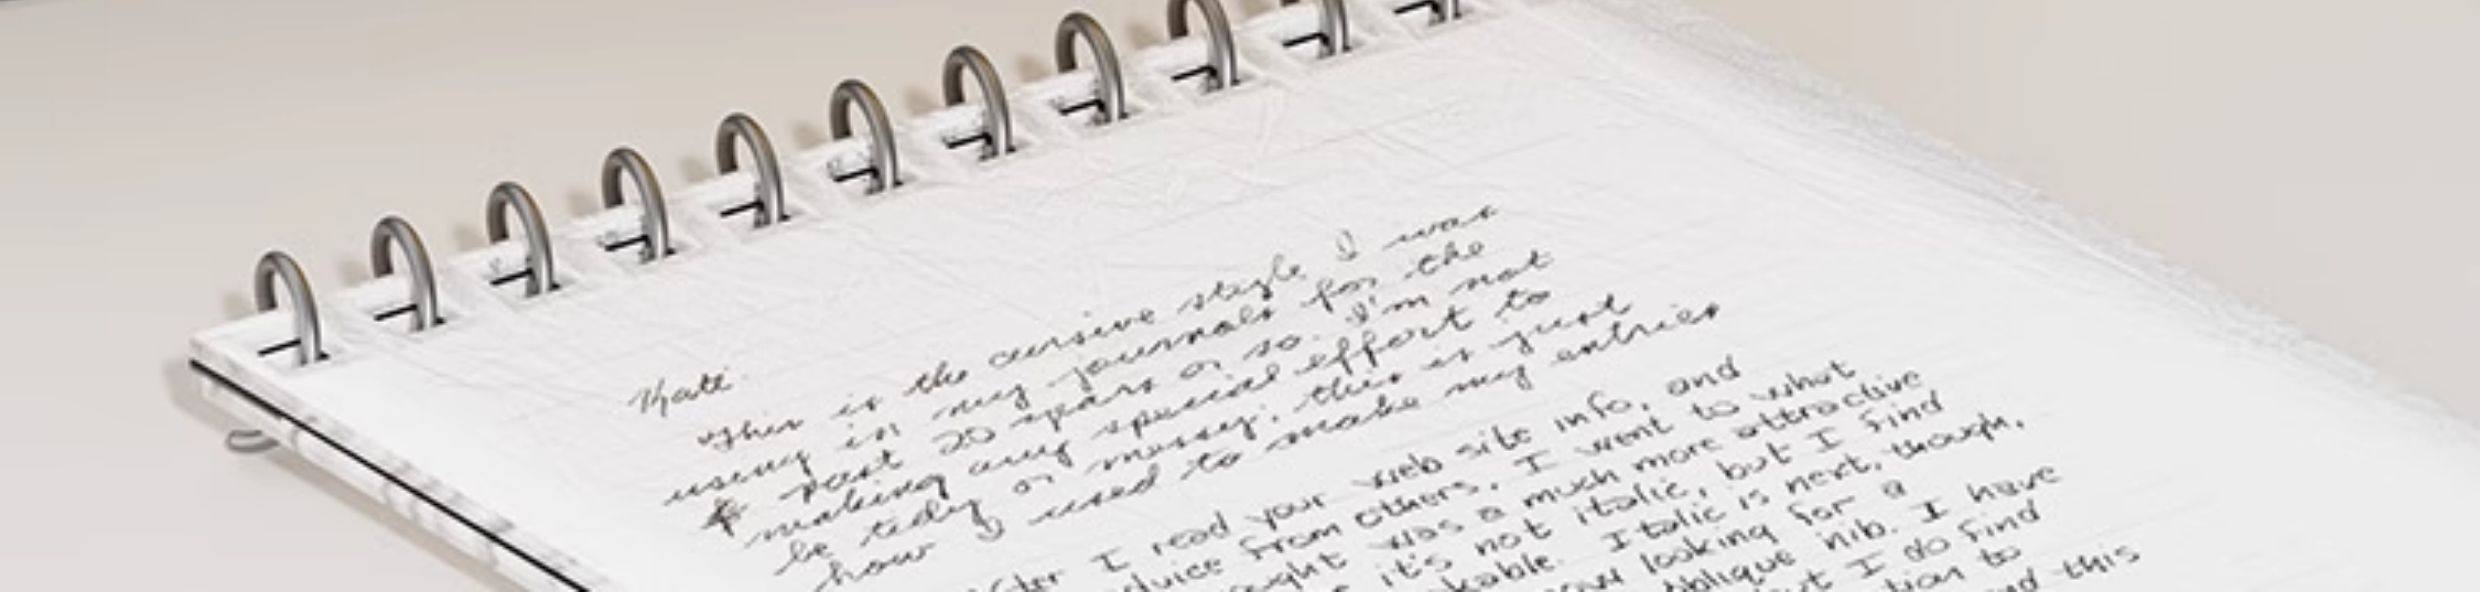 Kate.
This is the cursive style I was
using in my journals for the
past 20 years or so. I'm not
making any special effort to
be tidy or messy; this is just
how I used to make my entries
I read your web site info, and
advice from others, I went to what
was a much more attractive
it's not italic, but I find
Italic is next, though.
looking for a
oblique nib. I have
I do find
to
this